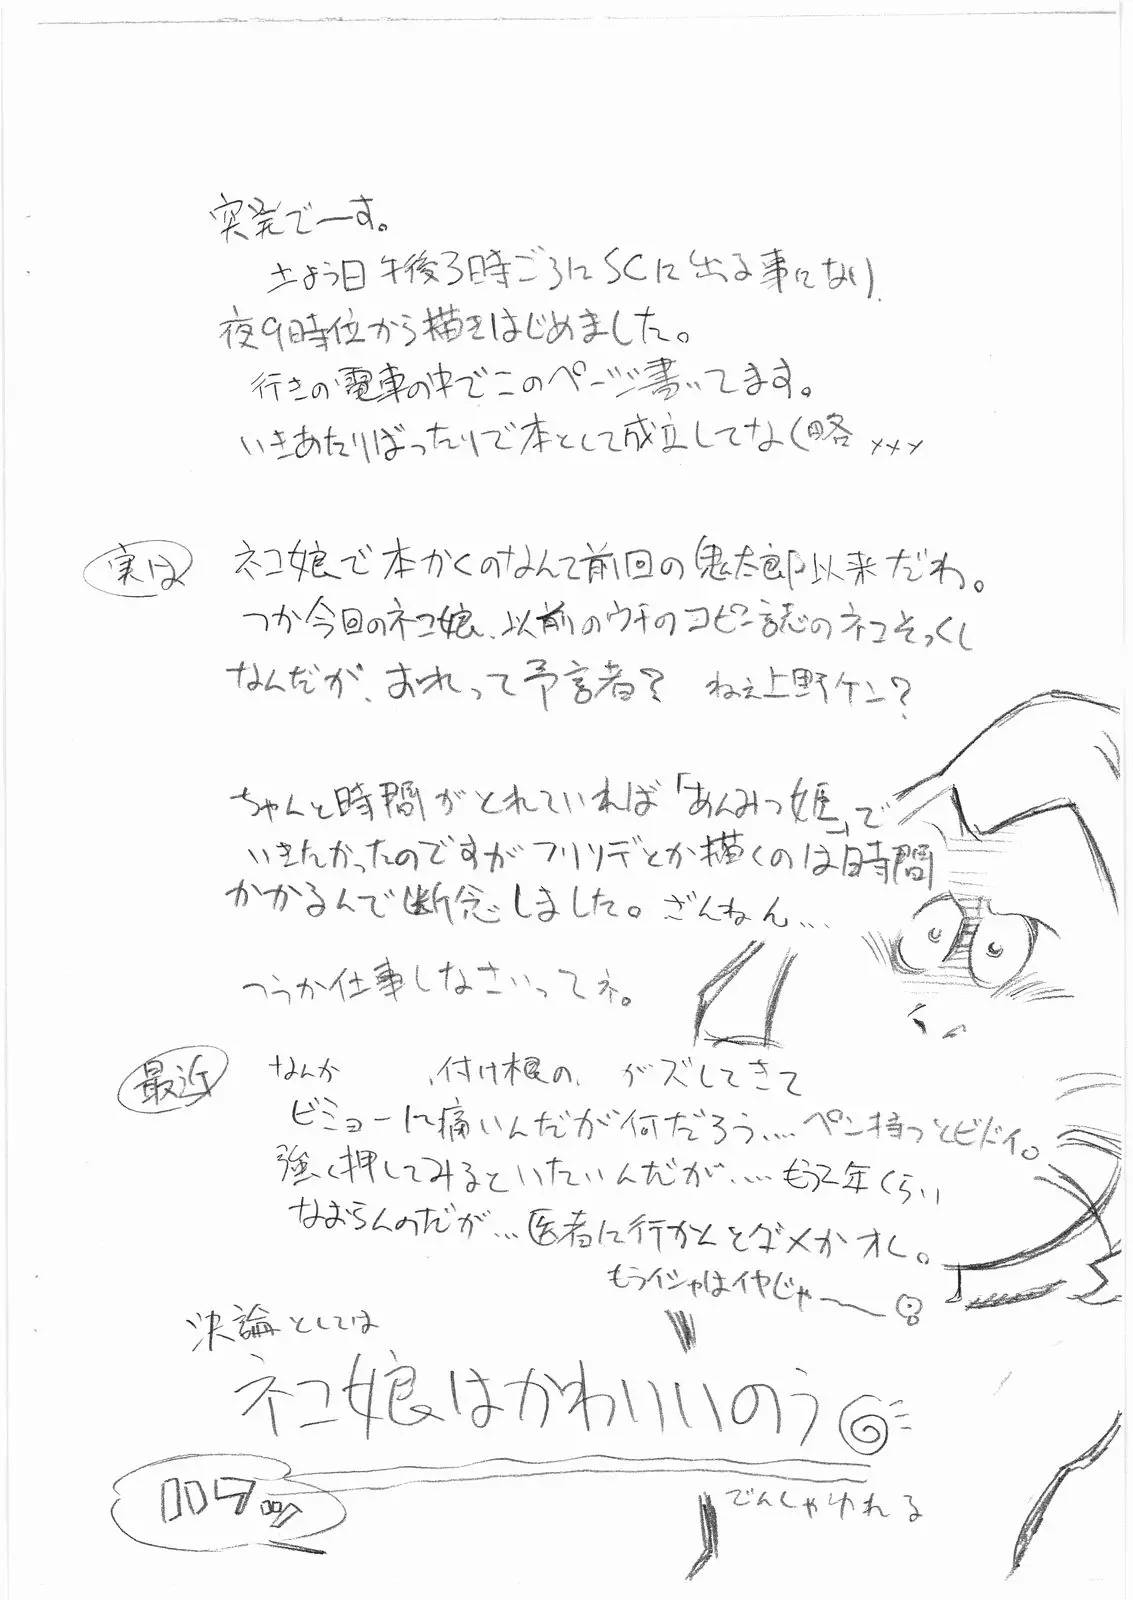 突発でーす。
土よう日午後3時ごろにSCに出る事になり、
夜9時位から描きはじめました。
行きの電車の中でこのページ書いてます。
いきあたりばったりで本として成立してな(略
実は
ネコ娘で本かくのなんて前回の鬼太郎以来だわ。
つか今回のネコ娘、以前のウチのコピー誌のネコそっくし
なんだが、おれって予言者? ねぇ上野ケン?
ちゃんと時間がとれていれば「あんみつ姫」で
いきたかったのですがフリソデとか描くのは時間
かかるんで断念しました。ざんねん…
つうか仕事しなさいってネ。
最近
なんか 付け根の、がズしてきて
ビミョーに痛いんだが何だろう…. ペン持つとヒドイ。
強く押してみるといたいんだが….. もう2年くらい
なおらんのだが… 医者に行かんとダメかオレ。
もうイシャはイヤじゃ〜〜
決論としては
ネコ娘はかわいいのう
でんしゃゆれる